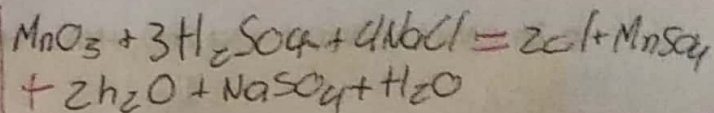 MnO3 + 3H2SO4 + 4NaCl = 2cl + MnSO4
+ 2h2O + NaSO4 + H2O